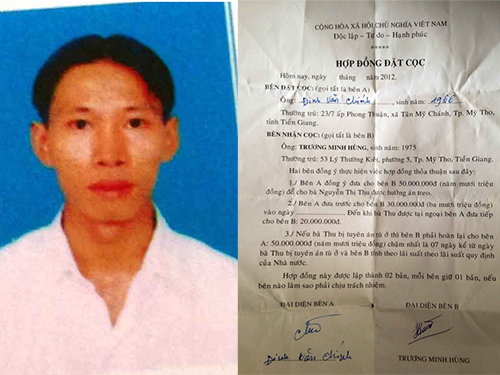 CỘNG HÒA XÃ HỘI CHỦ NGHĨA VIỆT NAM
Độc lập – Tự do – Hạnh phúc
*****
HỢP ĐỒNG ĐẶT CỌC
Hôm nay, ngày tháng năm 2012.
BÊN ĐẶT CỌC: (gọi tắt là bên A)
Ông: Đinh Văn Chính, sinh năm: 1966
Thường trú: 23/7 ấp Phong Thuận, xã Tân Mỹ Chánh, Tp. Mỹ Tho,
tỉnh Tiền Giang.
BÊN NHẬN CỌC: (gọi tắt là bên B)
Ông: TRƯƠNG MINH HÙNG, sinh năm: 1975
Thường trú: 53 Lý Thường Kiệt, phường 5, Tp. Mỹ Tho, Tiền Giang.
Hai bên đồng ý thực hiện việc hợp đồng thỏa thuận sau đây:
1./ Bên A đồng ý đưa cho bên B 50.000.000đ (năm mươi triệu
đồng) để cho bà Nguyễn Thị Thu được hưởng án treo.
2./ Bên A đưa trước cho bên B 30.000.000đ (ba mươi triệu đồng)
vào ngày Đến khi bà Thu được tại ngoại bên A đưa tiếp
cho bên B: 20.000.000đ.
3./ Nếu bà Thu bị tuyên án tù ở thì bên B phải hoàn lại cho bên
A: 50.000.000đ (năm mươi triệu đồng) chậm nhất là 07 ngày kể từ ngày
bà Thu bị tuyên án tù ở và bên B tính theo lãi suất theo lãi suất quy định
của Nhà nước.
Hợp đồng này được lập thành 02 bản, mỗi bên giữ 01 bản, nếu
bên nào làm sao phải chịu trách nhiệm.
ĐẠI DIỆN BÊN A ĐẠI DIỆN BÊN B
Đinh Văn Chính TRƯƠNG MINH HÙNG